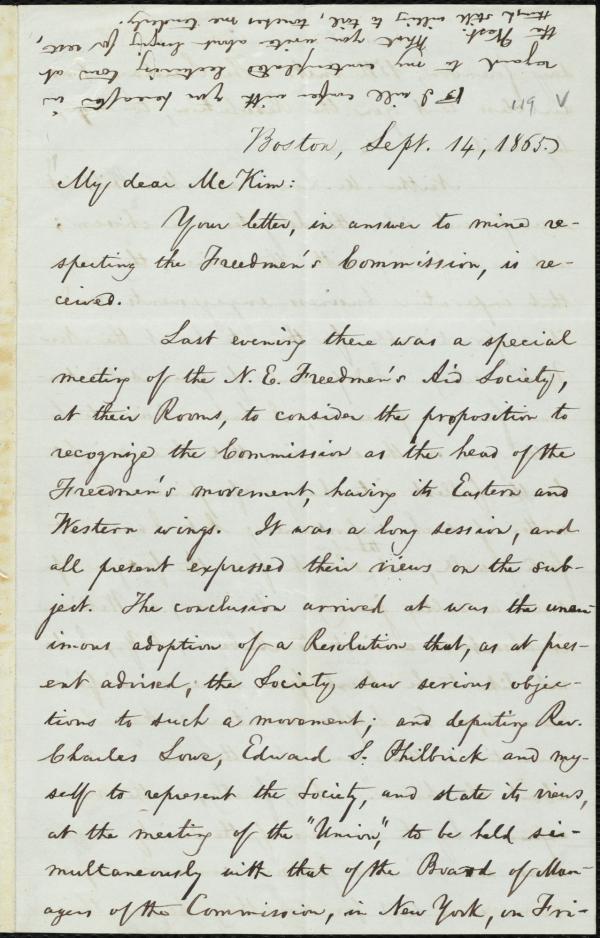 ☞ I will confer with you hereafter in
regard to my contemplated lecturing tour at
the West. What you write about longing for rest,
though still willing to toil, touches me tenderly.
119 V
Boston, Sept. 14, 1865.
My dear McKim:
Your letter, in answer to mine re-
specting the Freedmen's Commission, is re-
ceived.
Last evening there was a special
meeting of the N. E. Freedmen's Aid Society,
at their Rooms, to consider the proposition to
recognize the Commission as the head of the
Freedmen's movement, having its Eastern and
Western wings. It was a long session, and
all present expressed their views on the sub-
ject. The conclusion arrived at was the unan-
imous adoption of a Resolution that, as at pres-
ent advised, the Society saw serious objec-
tions to such a movement; and deputing Rev.
Charles Lowe, Edward S. Philbrick and my-
self to represent the Society, and state its views,
at the meeting of the "Union," to be held si-
multaneously with that of the Board of Man-
agers of the Commission, in New York, on Fri-